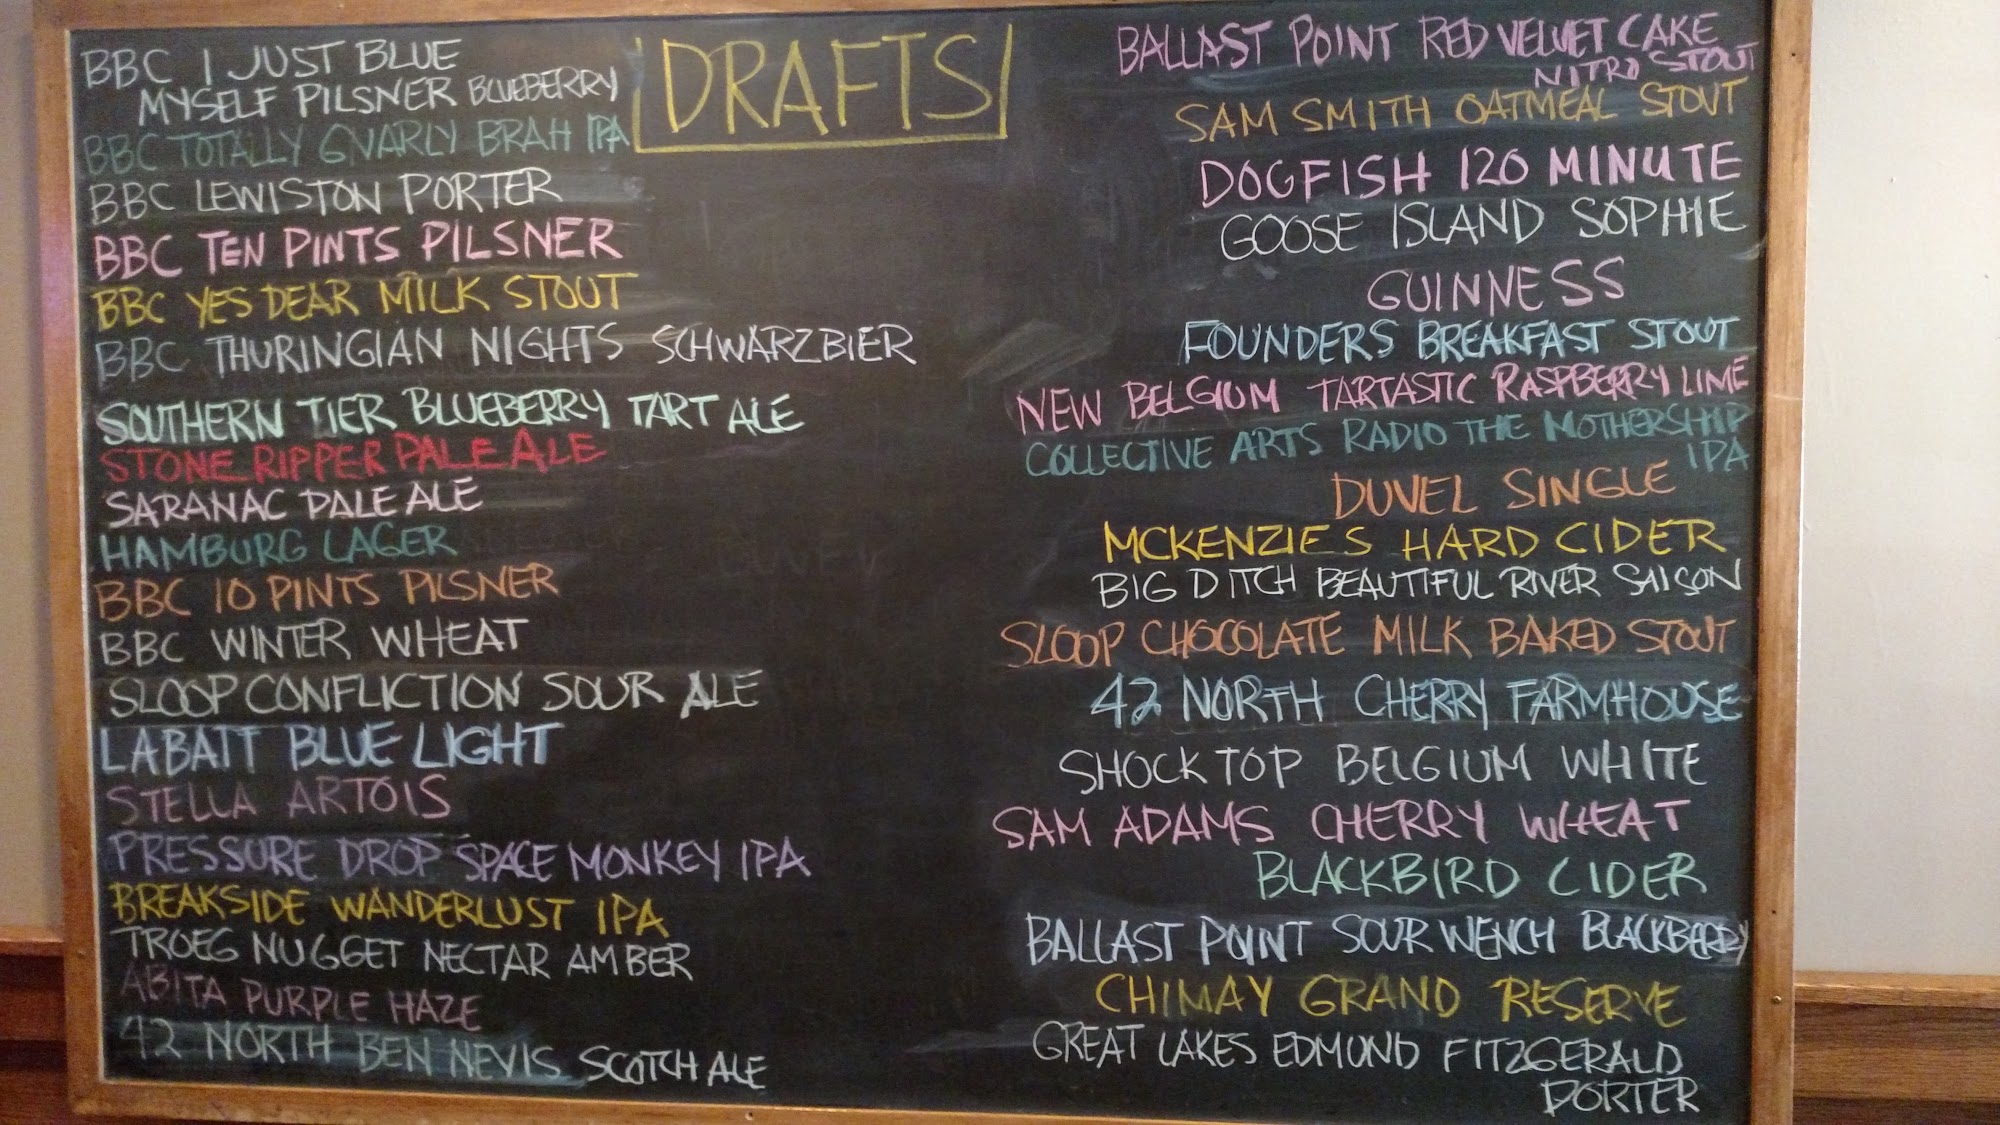 DRAFTS
BBC I JUST BLUE
MYSELF PILSNER BLUEBERRY
BBC TOTALLY GNARLY BRAH IPA
BBC LEWISTON PORTER
BBC TEN PINTS PILSNER
BBC YES DEAR MILK STOUT
BBC THURINGIAN NIGHTS SCHWARZBIER
SOUTHERN TIER BLUEBERRY TART ALE
STONE RIPPER PALE ALE
SARANAC PALE ALE
HAMBURG LAGER
BBC 10 PINTS PILSNER
BBC WINTER WHEAT
SLOOP CONFLICTION SOUR ALE
LABATT BLUE LIGHT
STELLA ARTOIS
PRESSURE DROP SPACE MONKEY IPA
BREAKSIDE WANDERLUST IPA
TROEG NUGGET NECTAR AMBER
ABITA PURPLE HAZE
42 NORTH BEN NEVIS SCOTCH ALE
BALLAST POINT RED VELVET CAKE
NITRO STOUT
SAM SMITH OATMEAL STOUT
DOGFISH 120 MINUTE
GOOSE ISLAND SOPHIE
GUINNESS
FOUNDERS BREAKFAST STOUT
NEW BELGIUM TARTASTIC RASPBERRY LIME
COLLECTIVE ARTS RADIO THE MOTHERSHIP
IPA
DUVEL SINGLE
MCKENZIES HARD CIDER
BIG DITCH BEAUTIFUL RIVER SAISON
SLOOP CHOCOLATE MILK BAKED STOUT
42 NORTH CHERRY FARMHOUSE
SHOCK TOP BELGIUM WHITE
SAM ADAMS CHERRY WHEAT
BLACKBIRD CIDER
BALLAST POINT SOUR WENCH BLACKBERRY
CHIMAY GRAND RESERVE
GREAT LAKES EDMUND FITZGERALD
PORTER